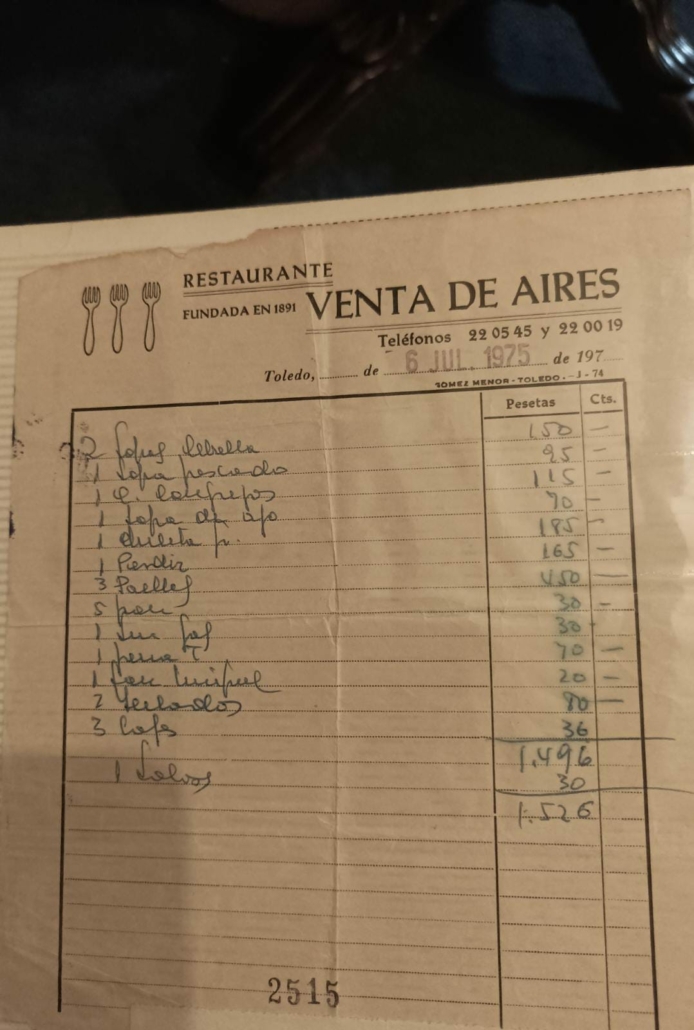 RESTAURANTE
FUNDADA EN 1891 VENTA DE AIRES
Teléfonos 22 05 45 y 22 00 19
Toledo, de 6 JUL. 1975 de 197
GOMEZ MENOR-TOLEDO.-1-74
Pesetas Cts.
2 Sopas 150 —
1 Sopa pescado 95 —
1 115 —
1 Sopa de ajo 70 —
1 185 —
1 Perdiz 165 —
3 Paellas 450 —
5 pan 30 —
1 30
1 70 —
1 20 —
2 Helados 80 —
3 Cafes 36
1.496
1 30
1.526
2515